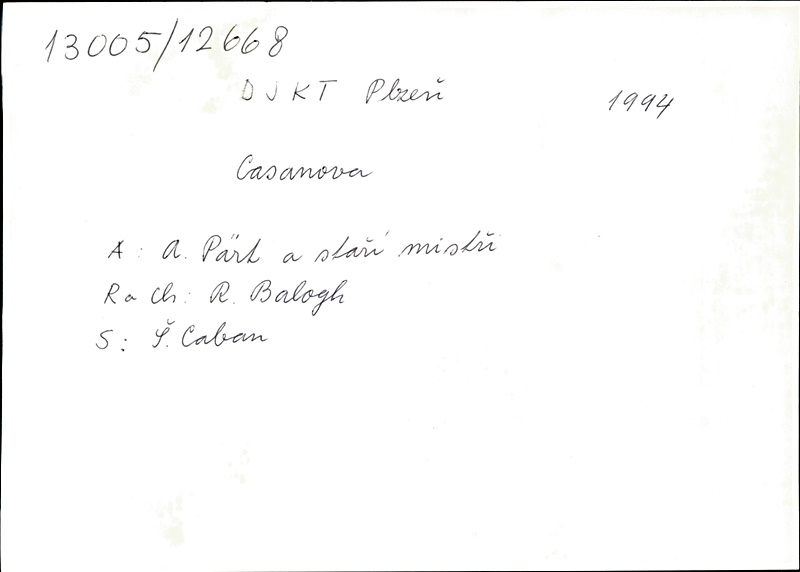 13005/12668
DJKT Plzeň
1994
Casanova
A: A. Pärt a staří mistři
R a Ch: R. Balogh
S: Š. Caban